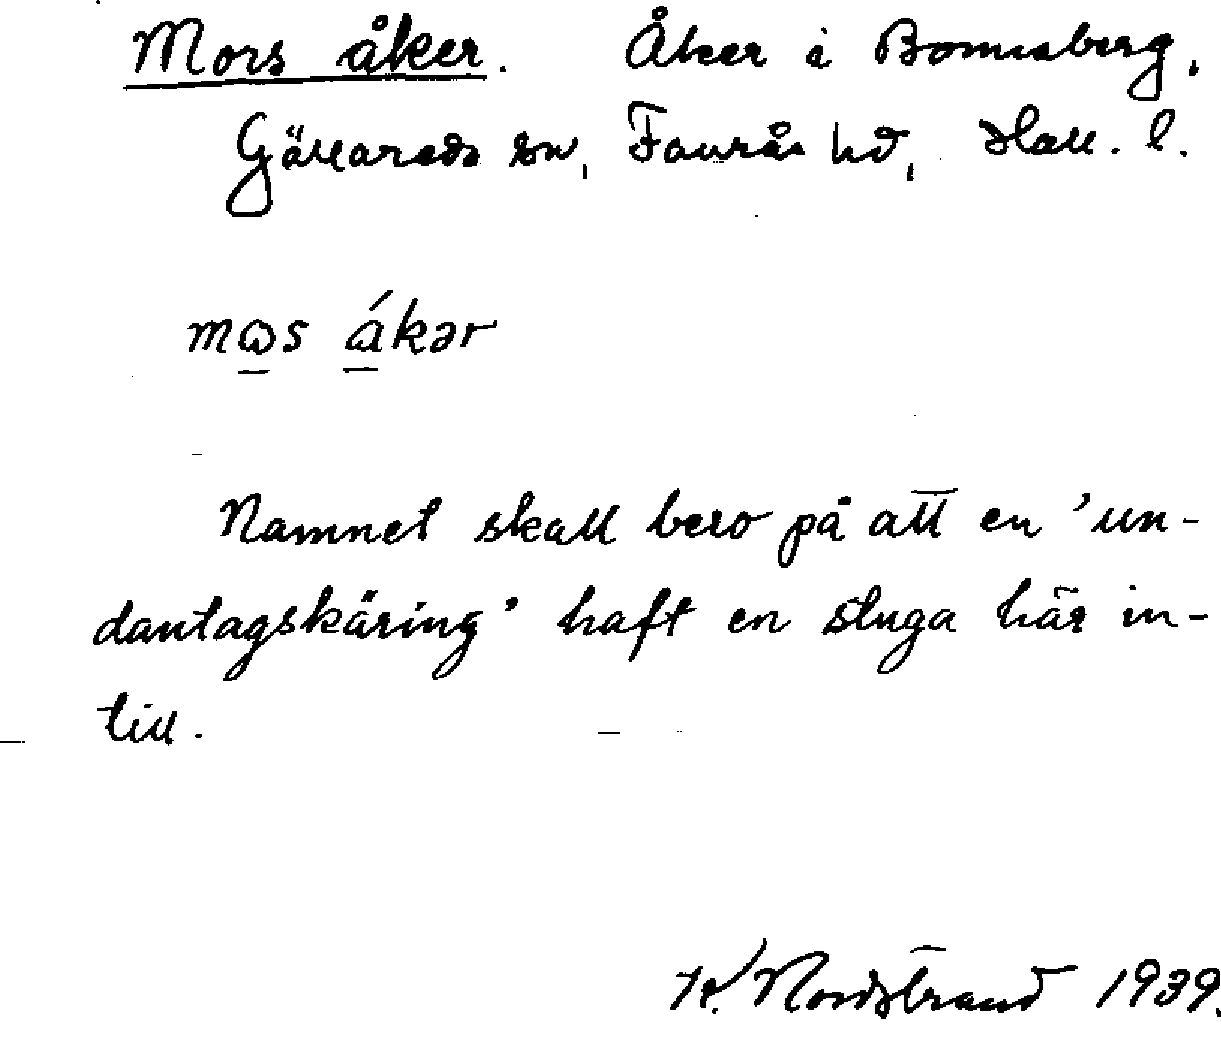 Mors åker. Åker i Bomsberg,
Gällareds sn, Faurås hd, Hall. l.
mꞷs ákər
Namnet skall bero på att en 'un-
dantagskäring' haft en stuga här in-
till.
K. Nordstrand 1939.